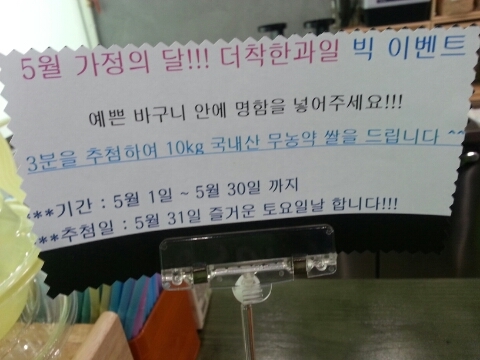 5월 가정의 달!!! 더착한과일 빅 이벤트
예쁜 바구니 안에 명함을 넣어주세요!!!
3분을 추첨하여 10kg 국내산 무농약 쌀을 드립니다 ^^
***기간 : 5월 1일 ~ 5월 30일 까지
***추첨일 : 5월 31일 즐거운 토요일날 합니다!!!